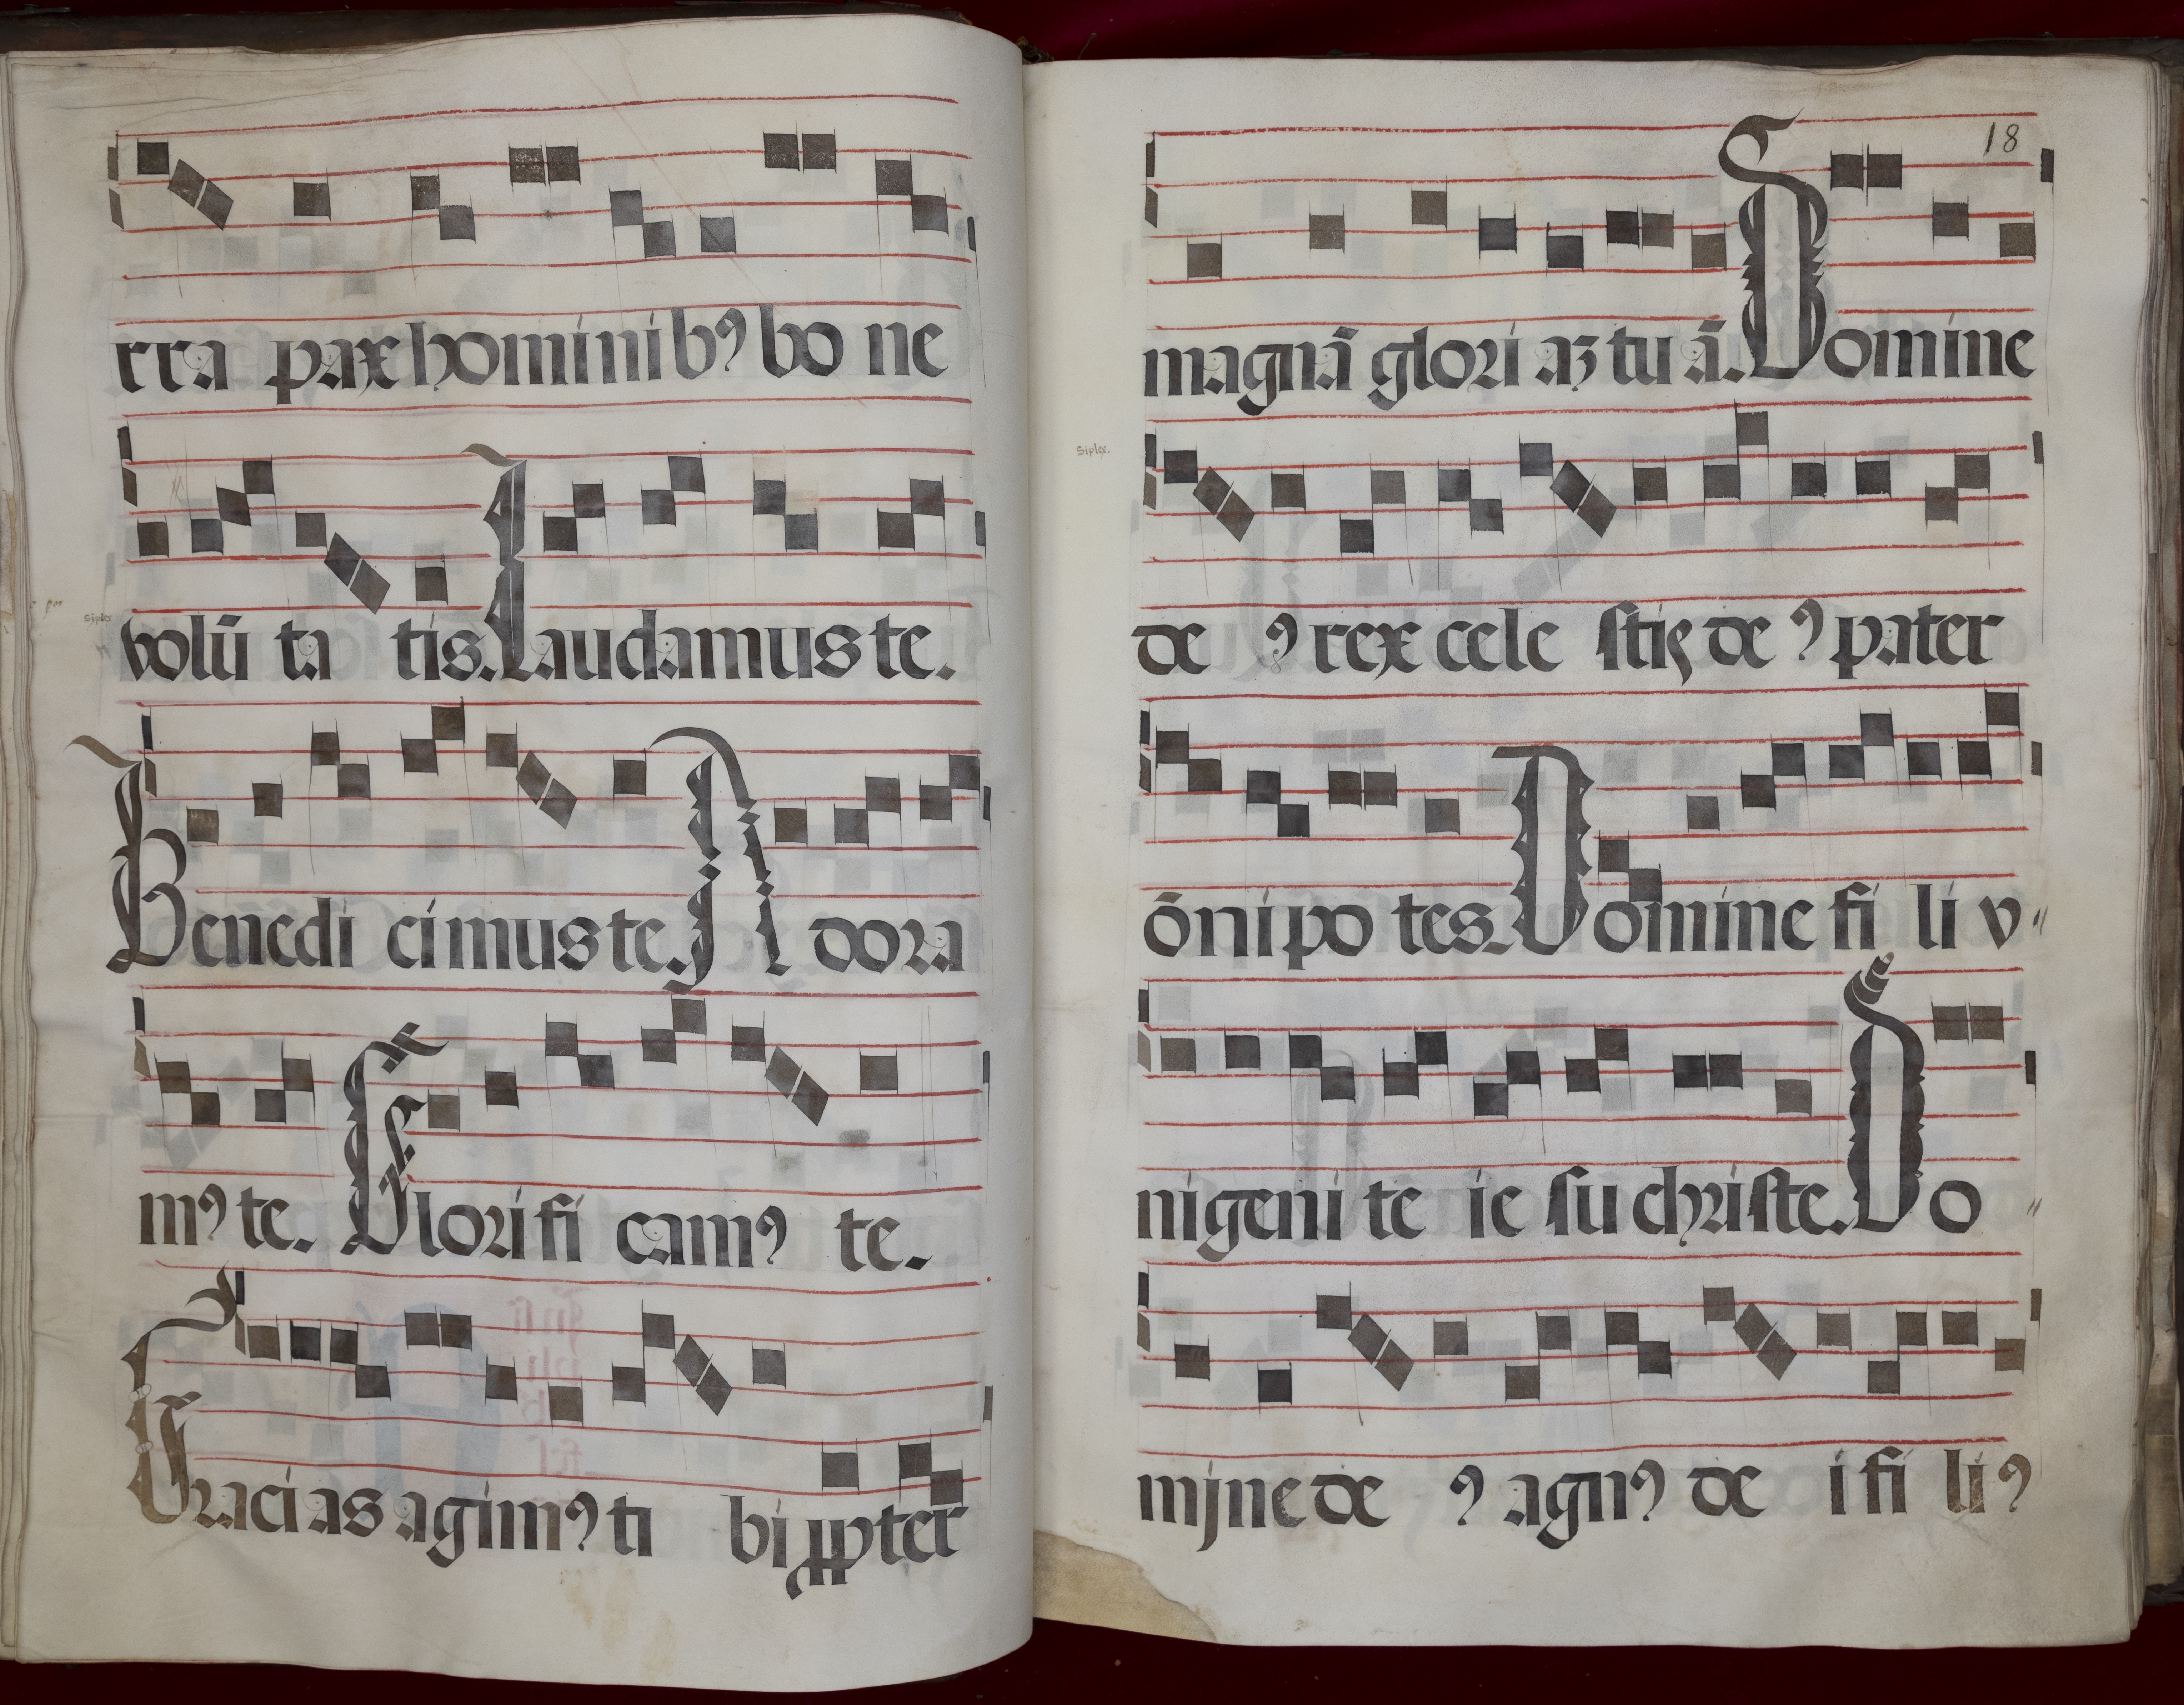 rra pax hominibꝰ bo ne
volū ta tis. Laudamus te.
Benedi cimus te. A dora
mꝰ te. Glorifi camꝰ te.
Gracias agimꝰ ti bi ꝓpter
18
magnā glori aꝫ tu ā. Domine
Siplex.
de ꝰ rex cele stis de ꝰ pater
ōnipo tes. Domine fi li v〃
nigeni te ie su christe. Do〃
mjne de ꝰ agnꝰ de i fi liꝰ